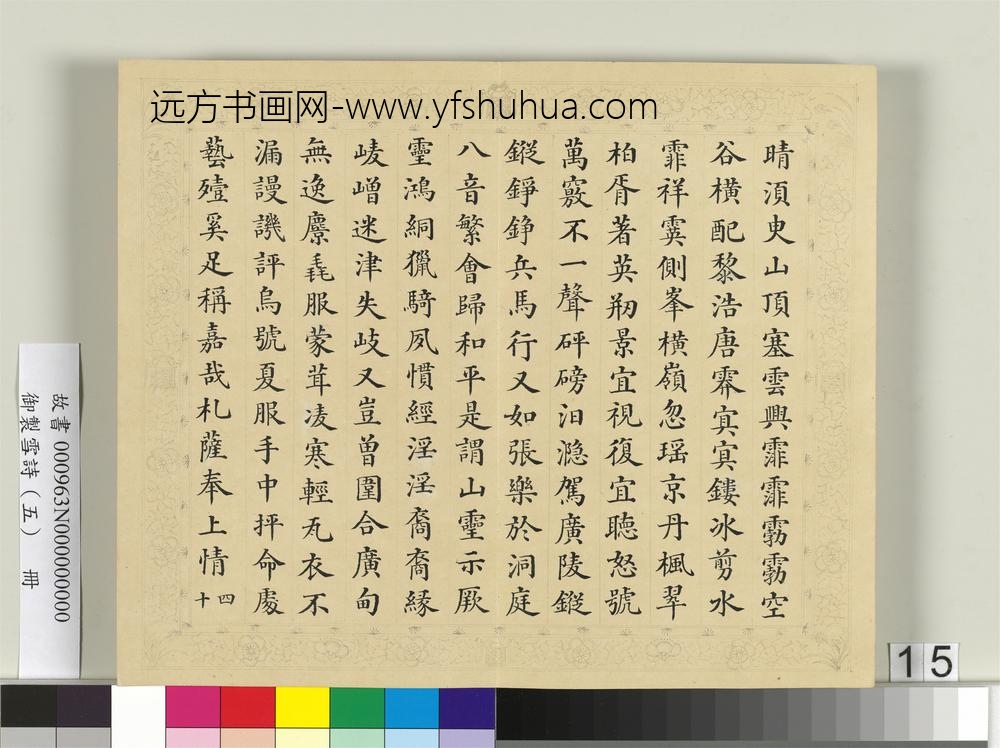 远方书画网-www.yfshuhua.com
晴須臾山頂塞雲興霏霏雰雰空
谷橫配黎浩唐霥寘寘鏤冰剪水
霏祥霙側峯橫嶺忽瑤京丹楓翠
柏胥著英剏景宜視復宜聽怒號
萬竅不一聲砰磅汨濦駕廣陵鏦
鏦錚錚兵馬行又如張樂於洞庭
八音繁會歸和平是謂山靈示厥
靈鴻絅獵騎夙慣經淫淫裔裔緣
崚嶒迷津失岐又豈曾圍合廣甸
無逸麖毳服蒙茸凌寒輕瓦衣不
漏謾譏評烏號夏服手中抨命處
藝殪奚足稱嘉哉札薩奉上情
四
十
故書 000963N000000000
御製雪詩（五） 冊
15